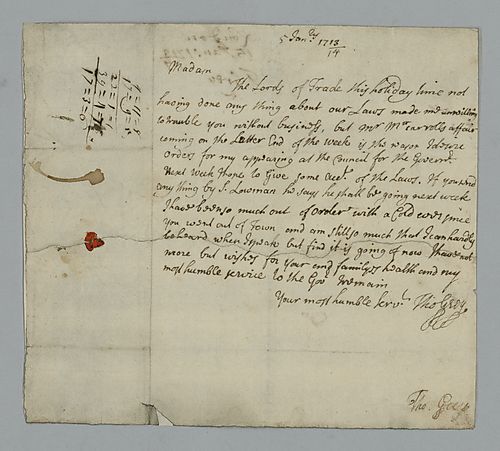 5 Jan:ry 1713/14
Madam
The Lords of Trade this holiday time not
having done any thing about our Laws made me unwilling
to trouble you without business, but Mr Mccarrells affair
coming on the Latter End of the week is the reason I desire
orders for my appearing at the Council for the Governr.
Next week I hope to Give some acct. of the Laws. If you send
any thing by J. Lowman he says he shall be going next week
I have been so much out of order with a Cold ever since
you went out of Town and am still so much that I can hardly
be heard when I speak but find it is going of now I have not
more but wishes for your and familys health and my
most humble service to the Govr I remain
Your most humble servt.
Tho.